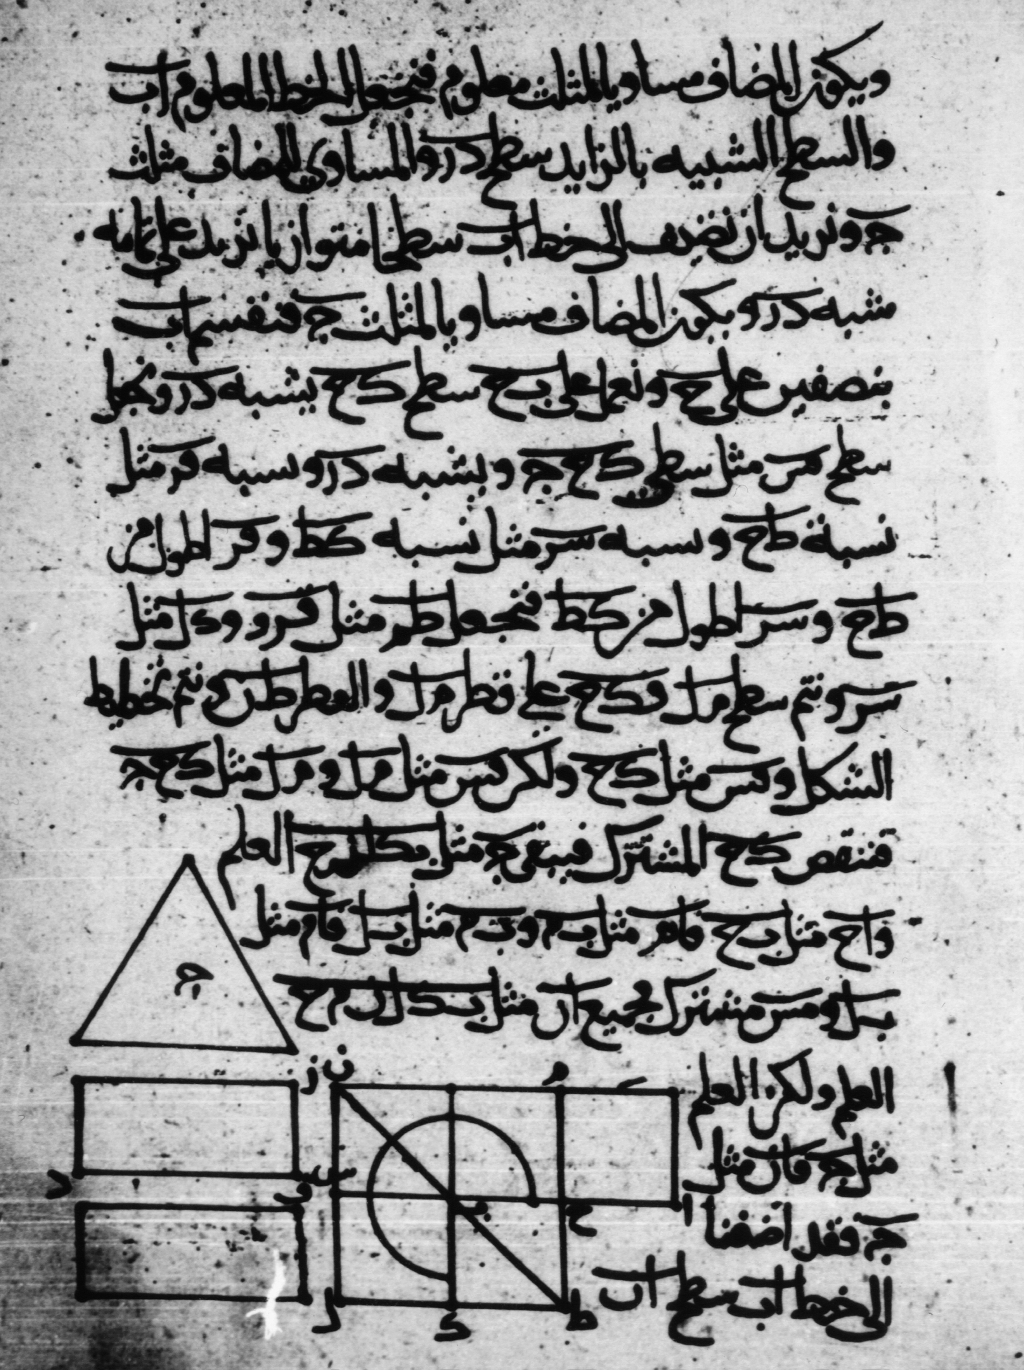 ويكون المضاف مساويا لمثلث معلوم فنجعل الخط المعلوم اب
والسطح الشبيه بالزايد سطح د ر والمساوي للمضاف مثلث
جـ ونريد ان نضيف الى خط اب سطحا متوازيا يزيد على تمامه
مشبه د ر ويكون المضاف مساويا لمثلث جـ فنقسم اب
بنصفين على ح ونعمل على بح سطح كح يشبه در ونجعل
سطح مثل سطحي كح جـ ويشبه در ونسبة قر مثل
نسبة طح ونسبة سر مثل نسبة كط وقر اطول من
طح وسر اطول من كط فنجعل طم مثل قر وكل مثل
سر ونتم سطح مل وكح على قطر مل والقطر طن ونتم تخطيط
الشكل وقس مثل كح جـ ولكن قس مثل مل ومل مثل كح جـ
فننقص كح المشترك فيبقى جـ مثل العلم
واح مثل بح فاهر مثل بم وبم مثل بل فام مثل
بل ومس مشترك فجميع ان مثل
العلم ولكن العلم
مثل جـ فان مثل
جـ فقد اضفنا
الى خط اب سطح ان
جـ
ز
ن
م
د
ف
س
ب
ح
ا
ل
ك
ط